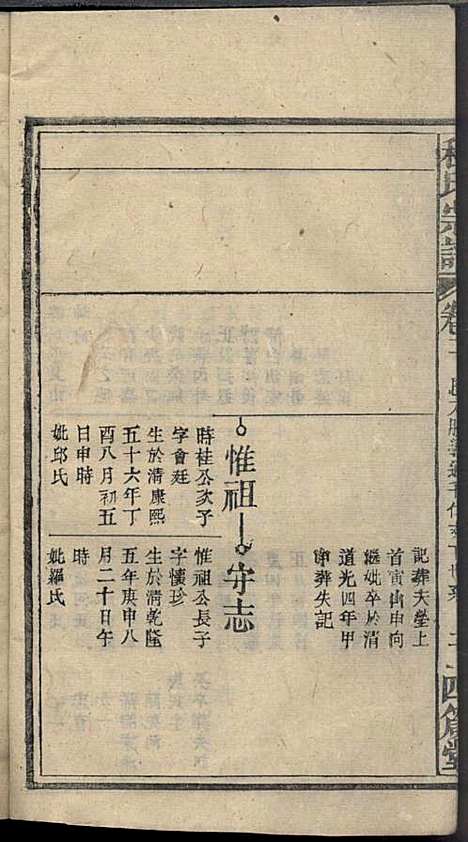 氏宗譜
卷二
四篇堂
記葬夫塋上
首寅山申向
繼妣卒於清
道光四年甲
申葬失記
惟祖
時桂公次子
字會廷
生於清康熙
五十六年丁
酉八月初五
日申時
妣邱氏
守志
惟祖公長子
字懷珍
生於清乾隆
五年庚申八
月二十日午
時
妣羅氏